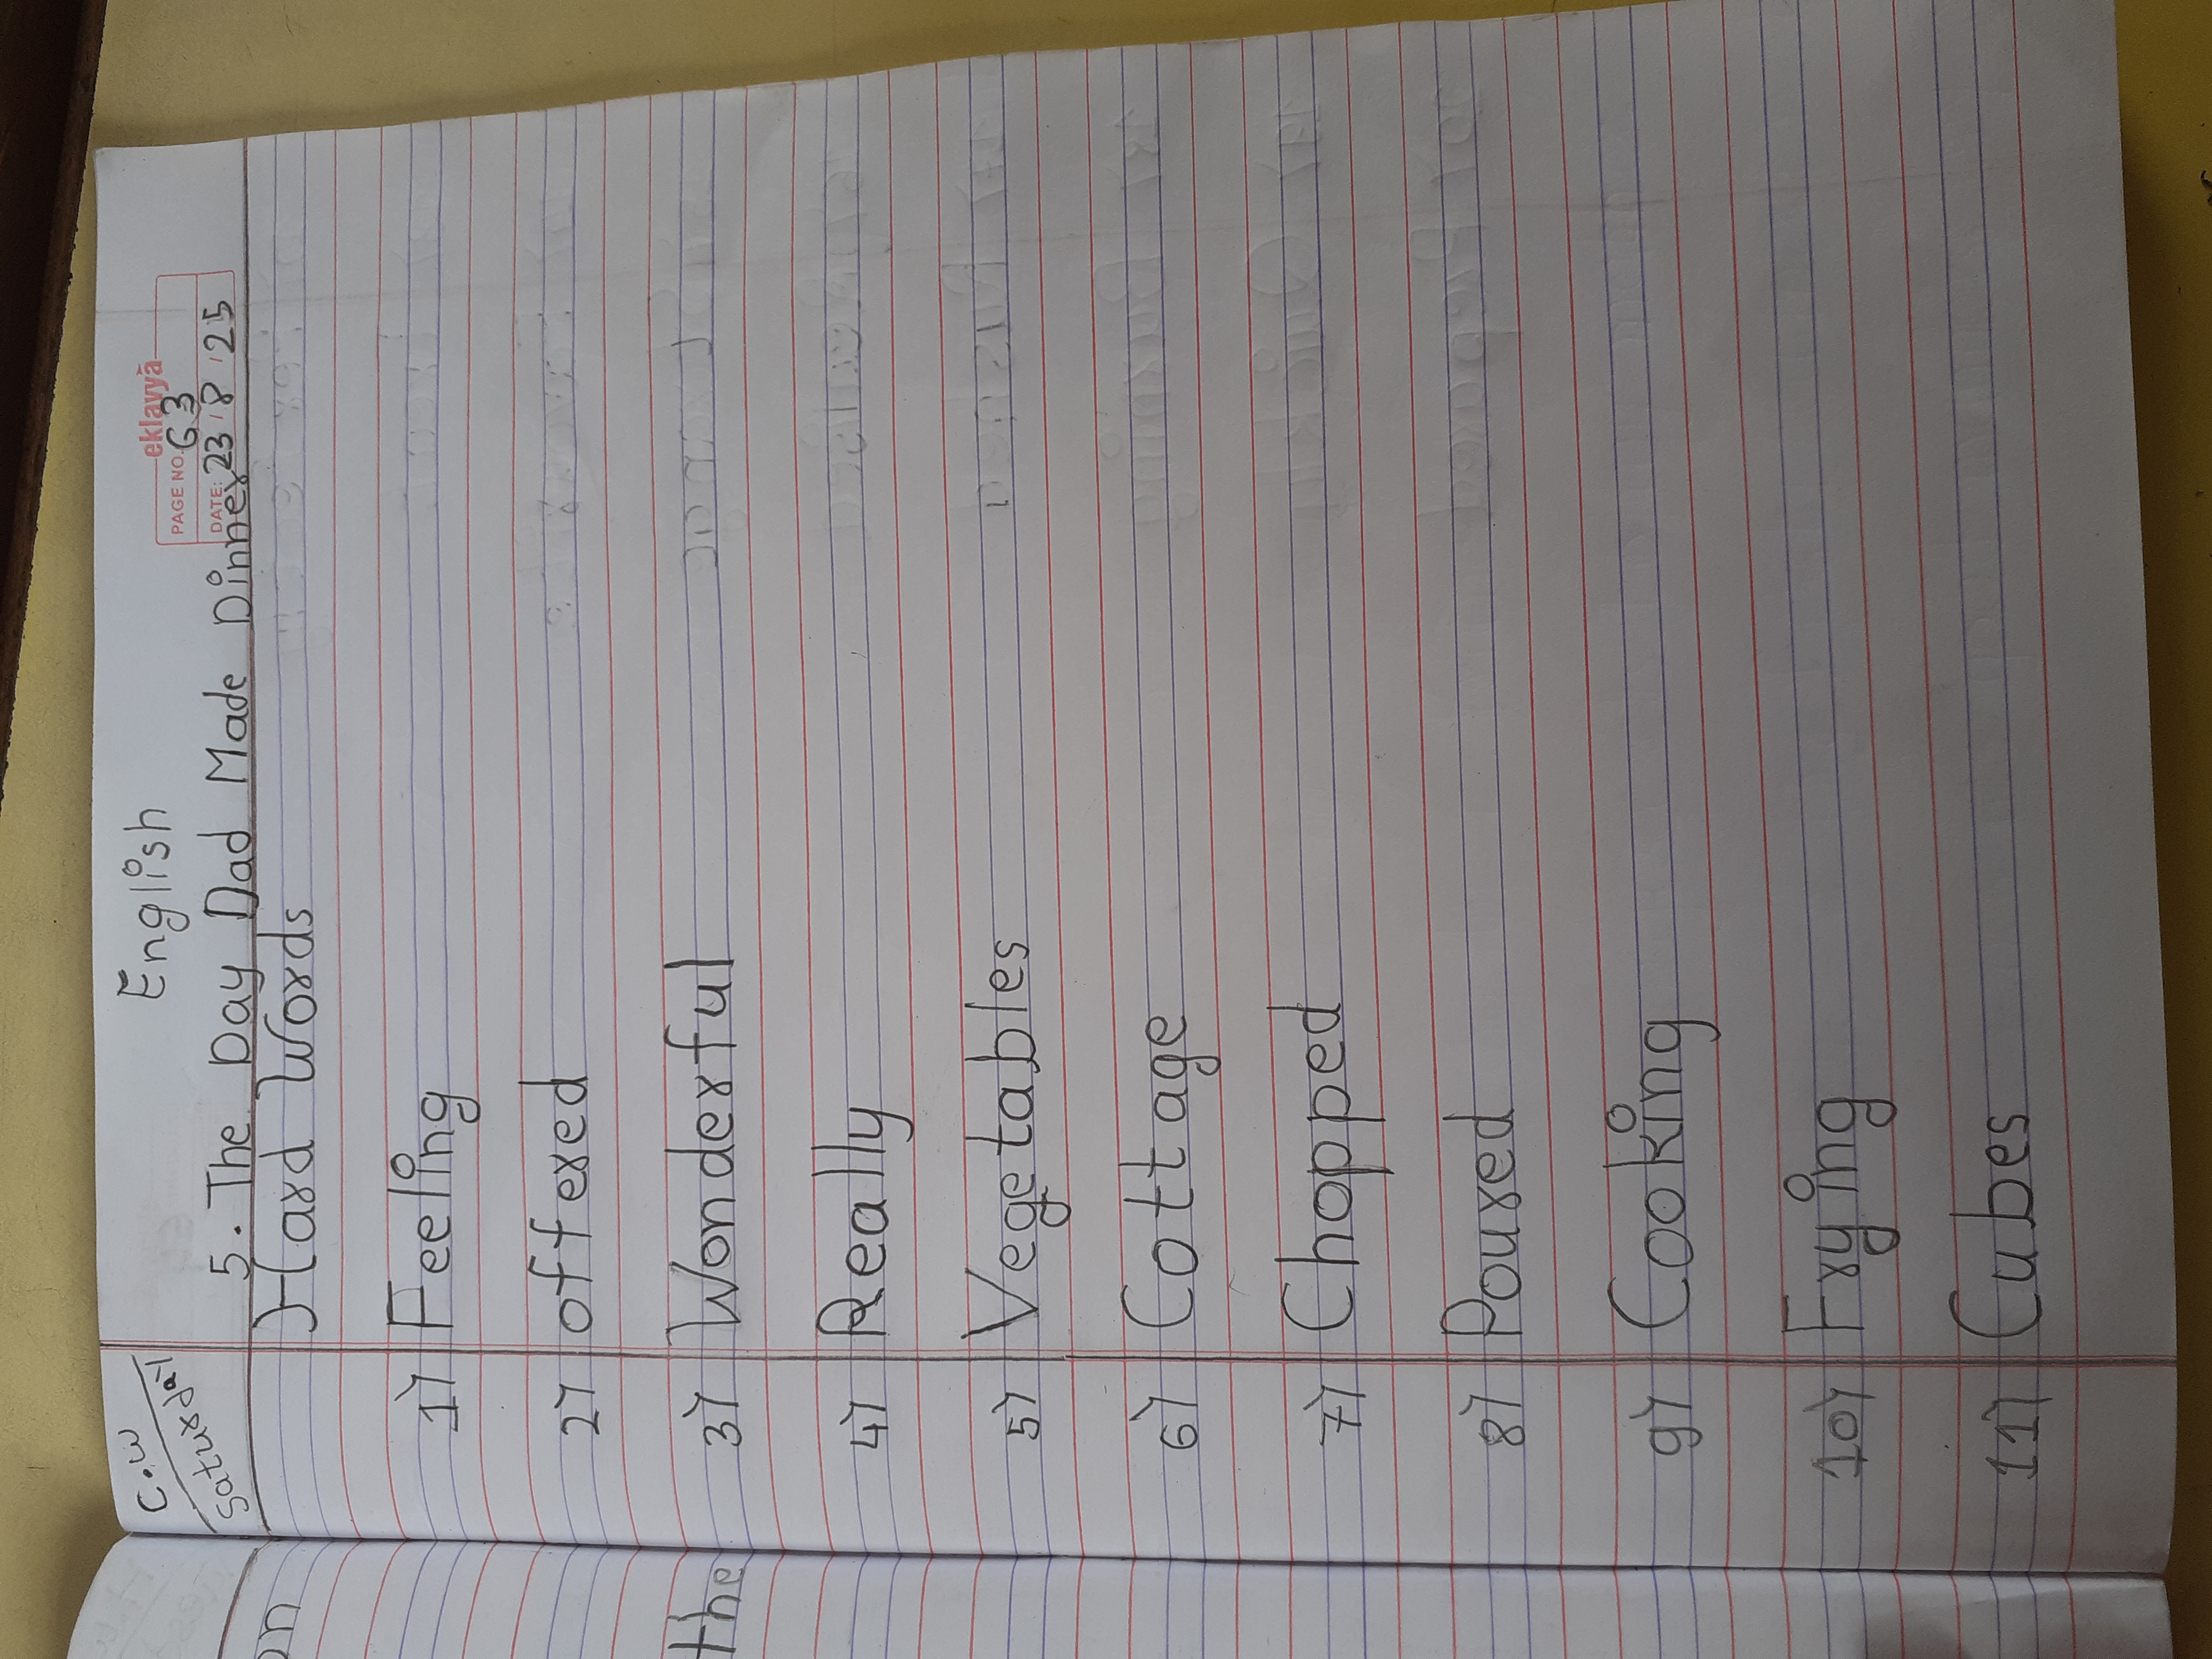 C.W
Saturday
English
eklavya
PAGE NO. 63
DATE: 23 8 25
5. The Day Dad Made Dinner
Hard Words
1) Feeling
2) offered
3) Wonderful
4) Really
5) Vegetables
6) Cottage
7) Chopped
8) Poured
9) Cooking
10) Frying
11) Cubes
on
the